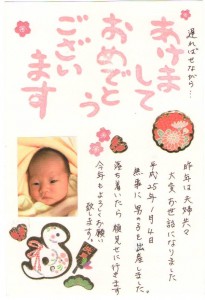 遅ればせながら…
あけまして
おめでとう
ございます
昨年は夫婦共々
大変お世話になりました
平成25年1月4日
無事に男の子を出産しました
落ち着いたら顔見せに行きます
今年もよろしくお願い
致します。